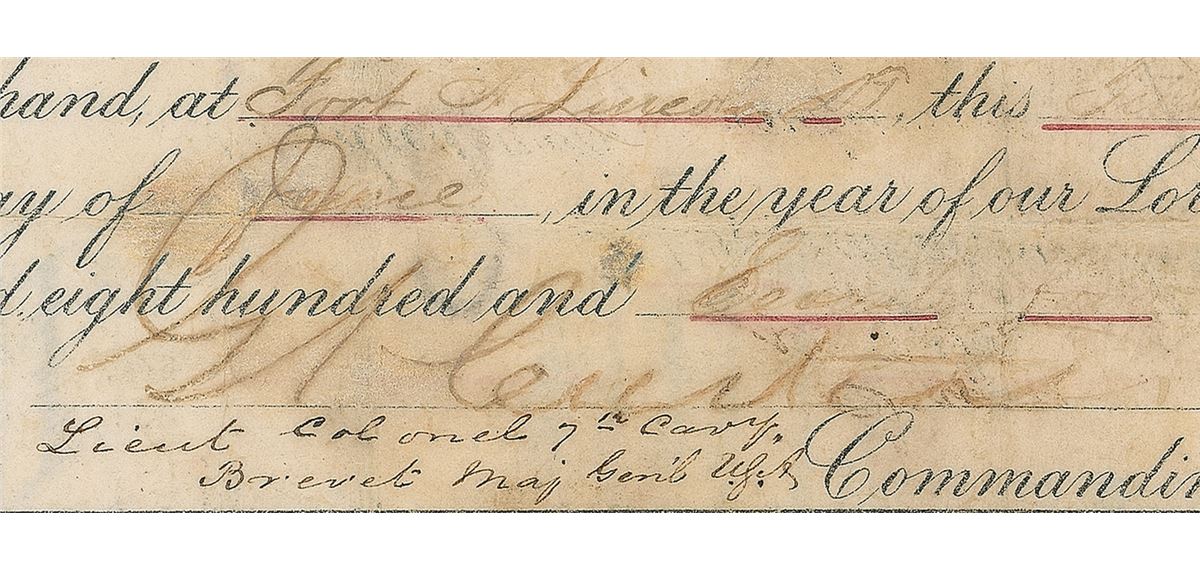 hand, at Fort A Lincoln DT, this
ay of June, in the year of our Lo
d eight hundred and
G A Custer
Lieut Colonel 7th Cavy.
Brevet Maj Genl U.S.A Commandin